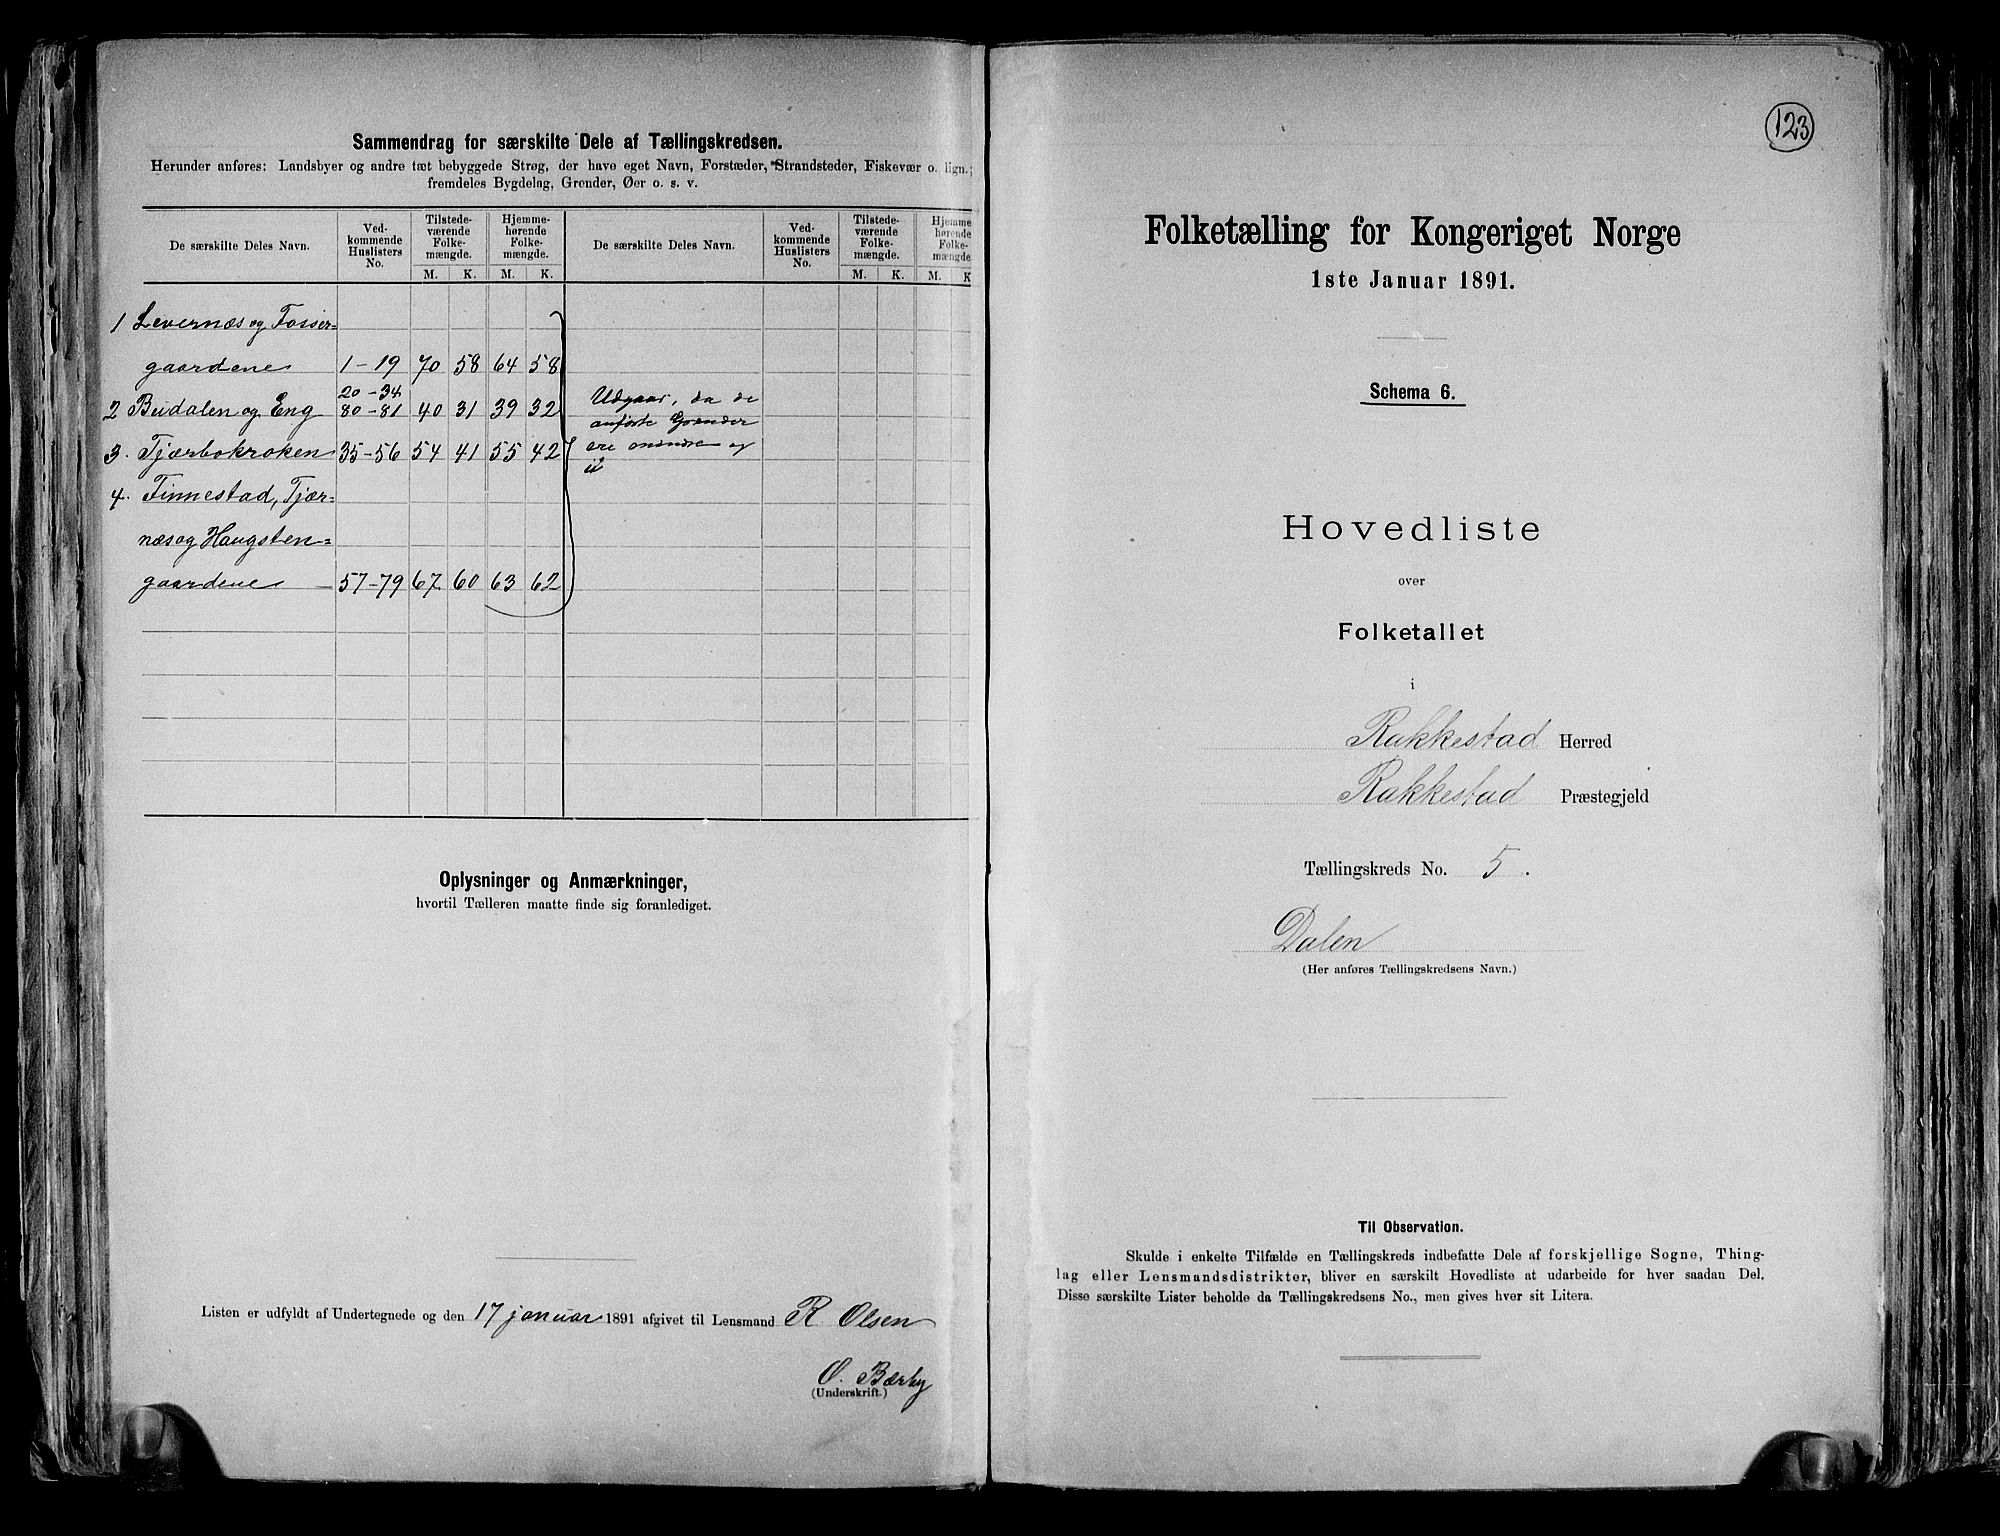 Sammendrag for særskilte Dele af Tællingskredsen.
Herunder anføres: Landsbyer og andre tæt bebyggede Strøg, der have eget Navn, Forstæder, Strandsteder, Fiskevær o. lign.;
fremdeles Bygdelag, Grender, Øer o. s. v.
De særskilte Deles Navn. Ved-kommende Huslisters No. Tilstede-værende Folke-mængde. Hjemme-hørende Folke-mængde. De særskilte Deles Navn. Ved-kommende Huslisters No. Tilstede-værende Folke-mængde. Hjemme hørende Folke-mængde
M. K. M. K. M. K. M. K
1 Levernæs og Fosser-
gaardene 1-19 70 58 64 58
20-34
2 Budalen og Eng 80-81 40 31 39 32
3. Tjærbokroken 35-56 54 41 55 42
4. Finnestad, Tjær-
næs og Haugsten-
gaardene 57-79 67 60 63 62
Udgaar, da de
anførte Grender
ere
Oplysninger og Anmærkninger,
hvortil Tælleren maatte finde sig foranlediget.
Listen er udfyldt af Undertegnede og den 17 januar 1891 afgivet til Lensmand R Olsen
O. Bærby
(Underskrift.)
123
Folketælling for Kongeriget Norge
1ste Januar 1891.
Schema 6.
Hovedliste
over
Folketallet
i
Rakkestad Herred
Rakkestad Præstegjeld
Tællingskreds No. 5.
Dalen
(Her anføres Tællingskredsens Navn.)
Til Observation.
Skulde i enkelte Tilfælde en Tællingskreds indbefatte Dele af forskjellige Sogne, Thing-
lag eller Lensmandsdistrikter, bliver en særskilt Hovedliste at udarbeide for hver saadan Del.
Disse særskilte Lister beholde da Tællingskredsens No., men gives hver sit Litera.